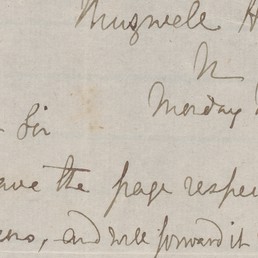 Muswele H
N
Monday
Sir
ave the page respe
ens, and will forward it